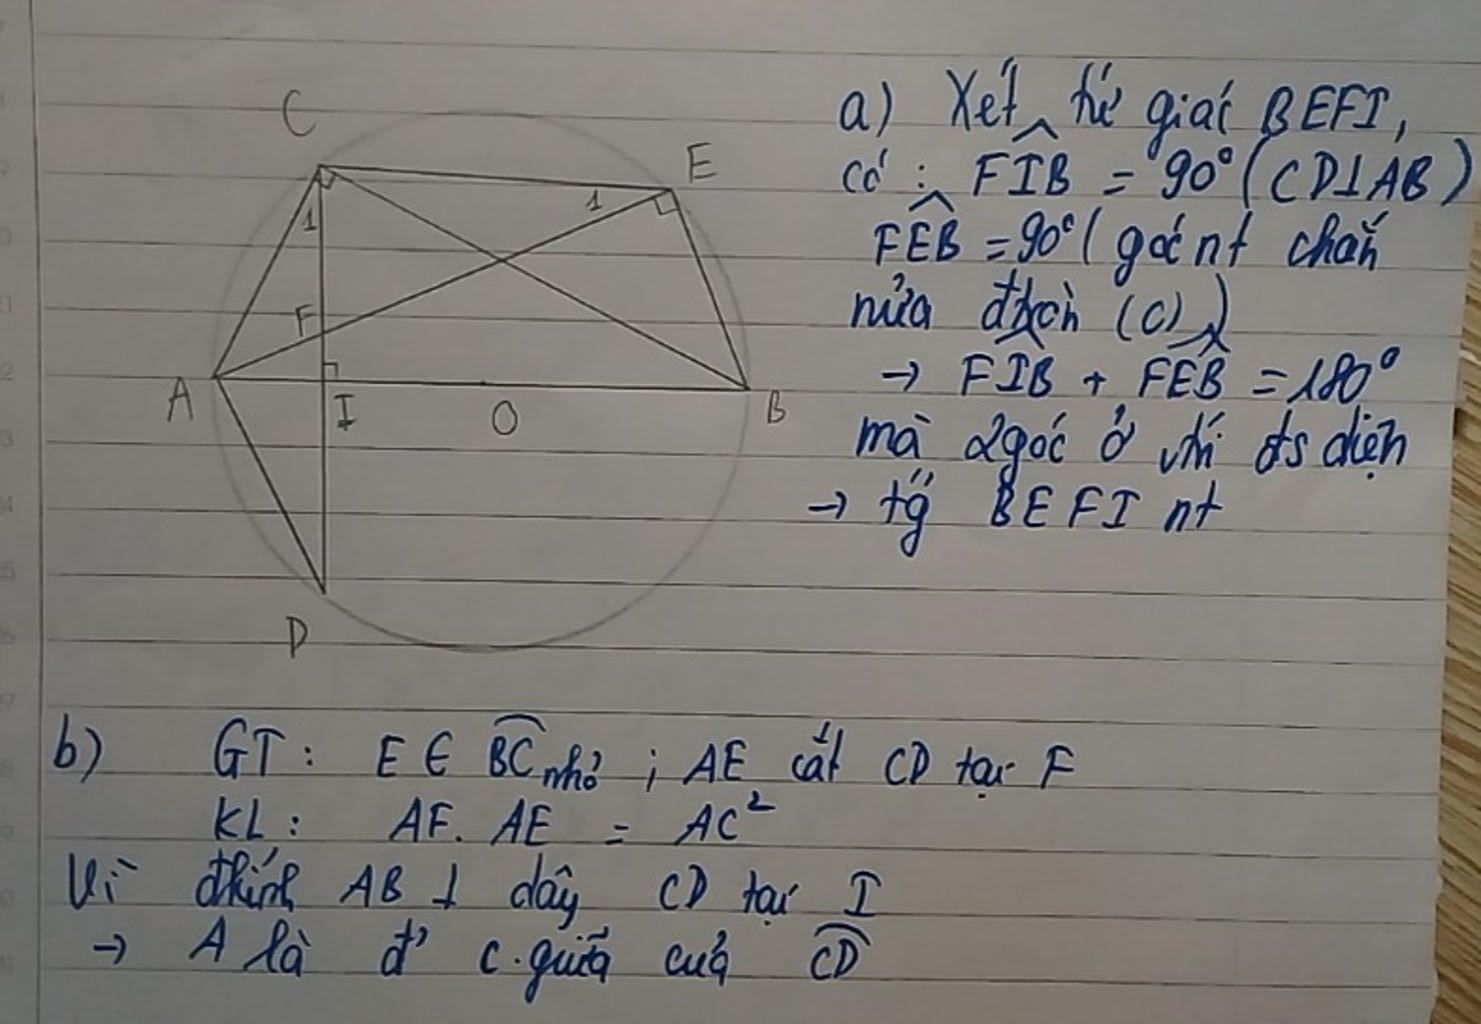 C
E
1
1
F
A
I
O
B
D
a) Xét tứ giác BEFI,
có : FIB = 90° ( CD⊥AB )
FEB = 90° ( góc nt chắn
nửa đtròn (C) )
→ FIB + FEB = 180°
mà 2 góc ở vtrí đs diện
→ tg BEFI nt
b) GT : E ∈ BC nhỏ ; AE cắt CD tại F
KL : AF. AE = AC²
Vì đkính AB ⊥ dây CD tại I
→ A là đ' c.giữa của CD